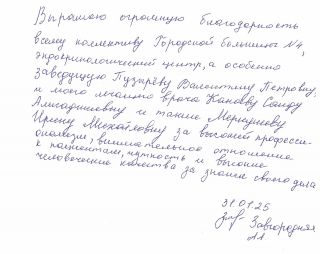 Выражаю огромную благодарность
всему коллективу Городской больницы №4,
эндокринологический центр, а особенно
Заведующую Пузырёву Валентину Петровну,
и моего лечащего врача Канаеву Саиду
и также Меркушеву
Ирину Михайловну за высокий професси-
онализм, внимательное отношение
к пациентам, чуткость и высокие
человеческие качества за знания своего дела
31.01.25
Завгородняя